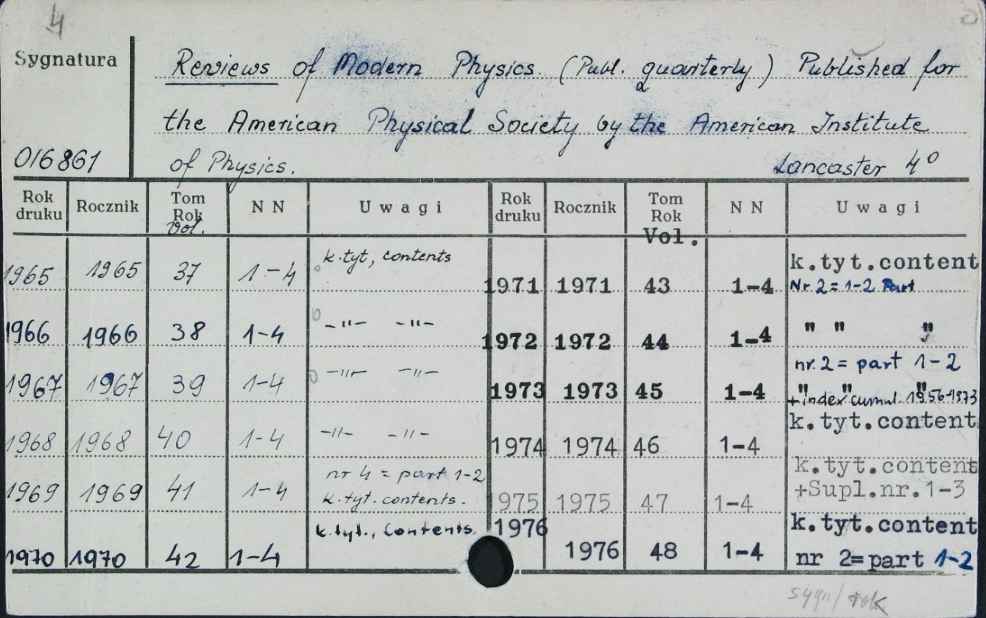 4
Sygnatura
Reviews of Modern Physics. (Publ. quarterly) Published for
the American Physical Society by the American Institute
016861 of Physics. Lancaster 4°
Rok druku Rocznik Tom Rok Vol. N N Uwagi Rok druku Rocznik Tom Rok Vol. N N Uwagi
1965 1965 37 1-4 k.tyt, contents
1966 1966 38 1-4 -"- -"-
1967 1967 39 1-4 -"- -"-
1968 1968 40 1-4 -"- -"-
nr 4 = part 1-2
1969 1969 41 1-4 k.tyt. contents.
1970 1970 42 1-4 k.tyt., contents.
k.tyt.content
1971 1971 43 1-4 Nr 2 = 1-2 Part
1972 1972 44 1-4 " " "
nr. 2 = part 1-2
1973 1973 45 1-4 " " "
+index cumul. 1956-1973
k.tyt.content
1974 1974 46 1-4
k.tyt.content
975 1975 47 1-4 +Supl.nr.1-3
1976 k.tyt.content
1976 48 1-4 nr 2=part 1-2
sygn/ rok